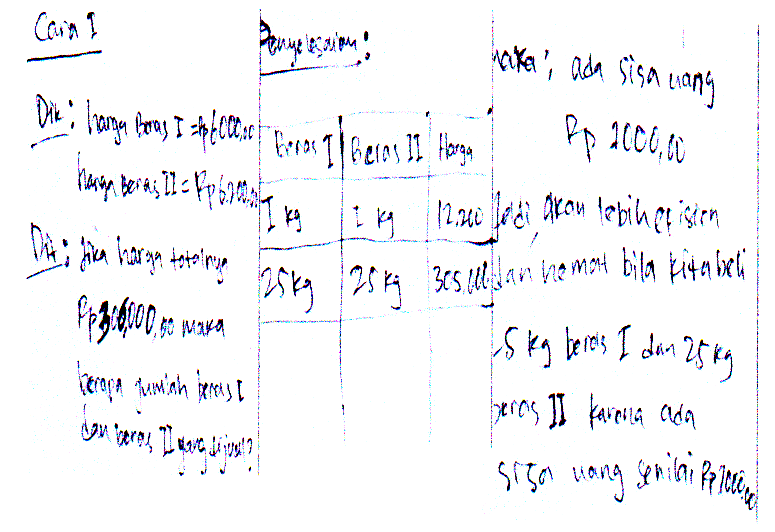 Cara I
Dik: harga Beras I = Rp 6000,00
harga beras II = Rp 6.200,00
Dit: Jika harga totalnya
Rp 306000,00 maka
berapa jumlah beras I
dan beras II yang dijual?
Penyelesaian:
Beras I Beras II Harga
1 kg 1 kg 12.200
25 kg 25 kg 305.000
maka; ada sisa uang
Rp 1000,00
Jadi, akan lebih efisien
dan hemat bila kita beli
25 kg beras I dan 25 kg
beras II karena ada
sisa uang senilai Rp 1000,00